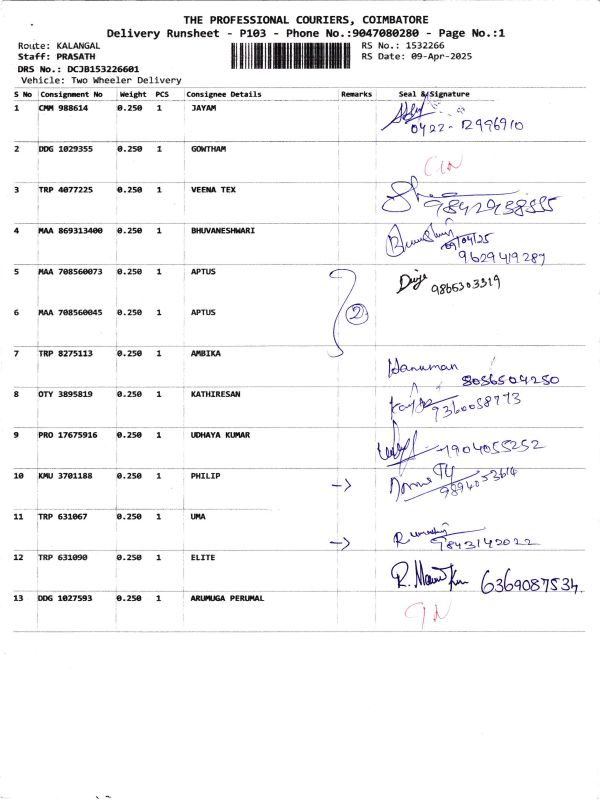 THE PROFESSIONAL COURIERS, COIMBATORE
Delivery Runsheet - P103 - Phone No.:9047080280 - Page No.:1
Route: KALANGAL RS No.: 1532266
Staff: PRASATH RS Date: 09-Apr-2025
DRS No.: DCJB153226601
Vehicle: Two Wheeler Delivery
S No Consignment No Weight PCS Consignee Details Remarks Seal & Signature
1 CMM 988614 0.250 1 JAYAM
0422-
2 DDG 1029355 0.250 1 GOWTHAM
3 TRP 4077225 0.250 1 VEENA TEX
4 MAA 869313400 0.250 1 BHUVANESHWARI
09/04/25
9629419287
5 MAA 708560073 0.250 1 APTUS
9866303319
6 MAA 708560045 0.250 1 APTUS
2
7 TRP 8275113 0.250 1 AMBIKA
Hanuman
8056504250
8 OTY 3895819 0.250 1 KATHIRESAN
9360058773
9 PRO 17675916 0.250 1 UDHAYA KUMAR
7904055252
10 KMU 3701188 0.250 1 PHILIP
->
11 TRP 631067 0.250 1 UMA
->
9843142022
12 TRP 631090 0.250 1 ELITE
6369087534
13 DDG 1027593 0.250 1 ARUMUGA PERUMAL